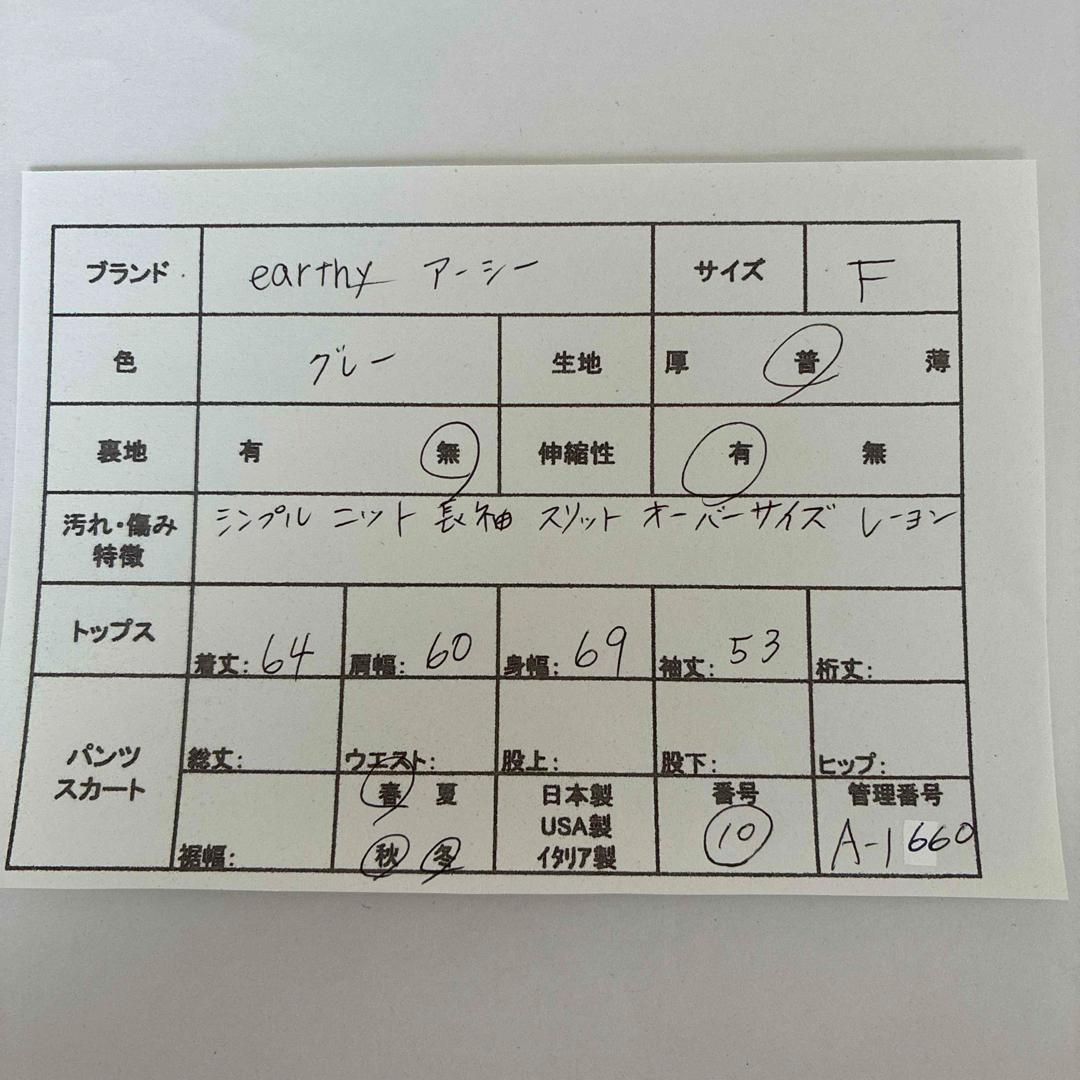 ブランド earthy アーシー サイズ F
色 グレー 生地 厚 普 薄
裏地 有 無 伸縮性 有 無
汚れ・傷み
特徴
シンプル ニット 長袖 スリット オーバーサイズ レーヨン
トップス
着丈: 64 肩幅: 60 身幅: 69 袖丈: 53 裄丈:
パンツ
スカート
総丈: ウエスト: 股上: 股下: ヒップ:
裾幅:
春 夏
秋 冬
日本製
USA製
イタリア製
番号
10
管理番号
A-1660